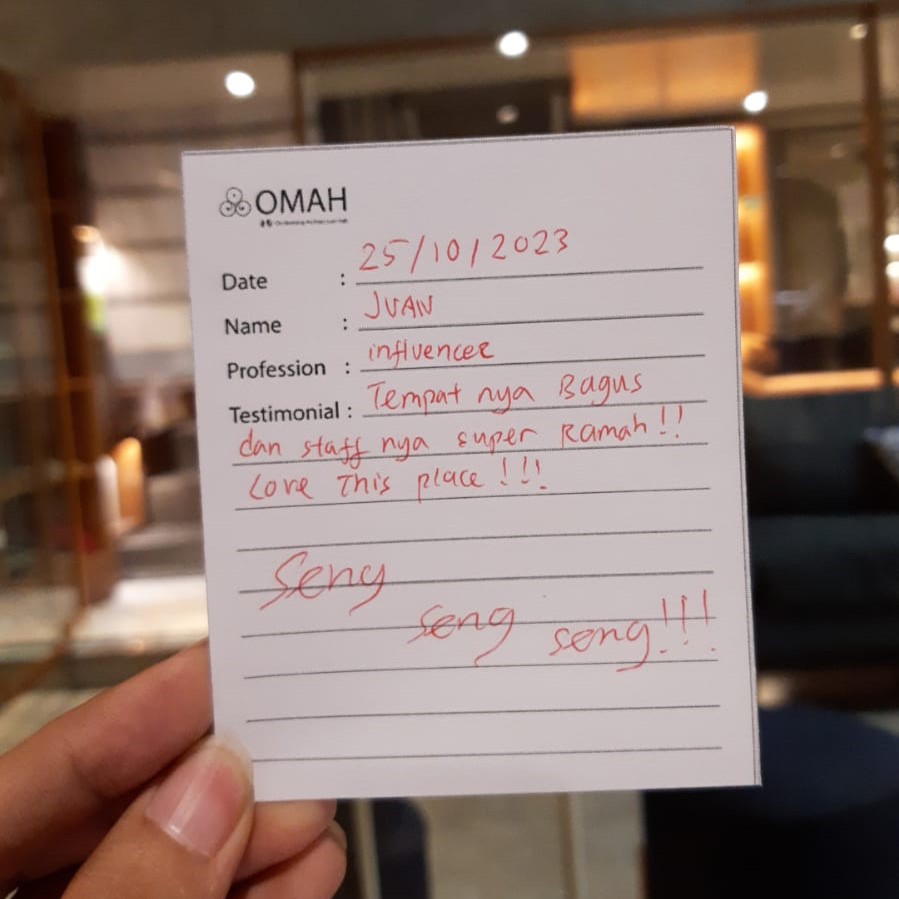 OMAH
Date : 25/10/2023
Name : JUAN
Profession : influencer
Testimonial : Tempat nya Bagus
dan staff nya super Ramah!!
Love This place!!!
Seng
seng song!!!